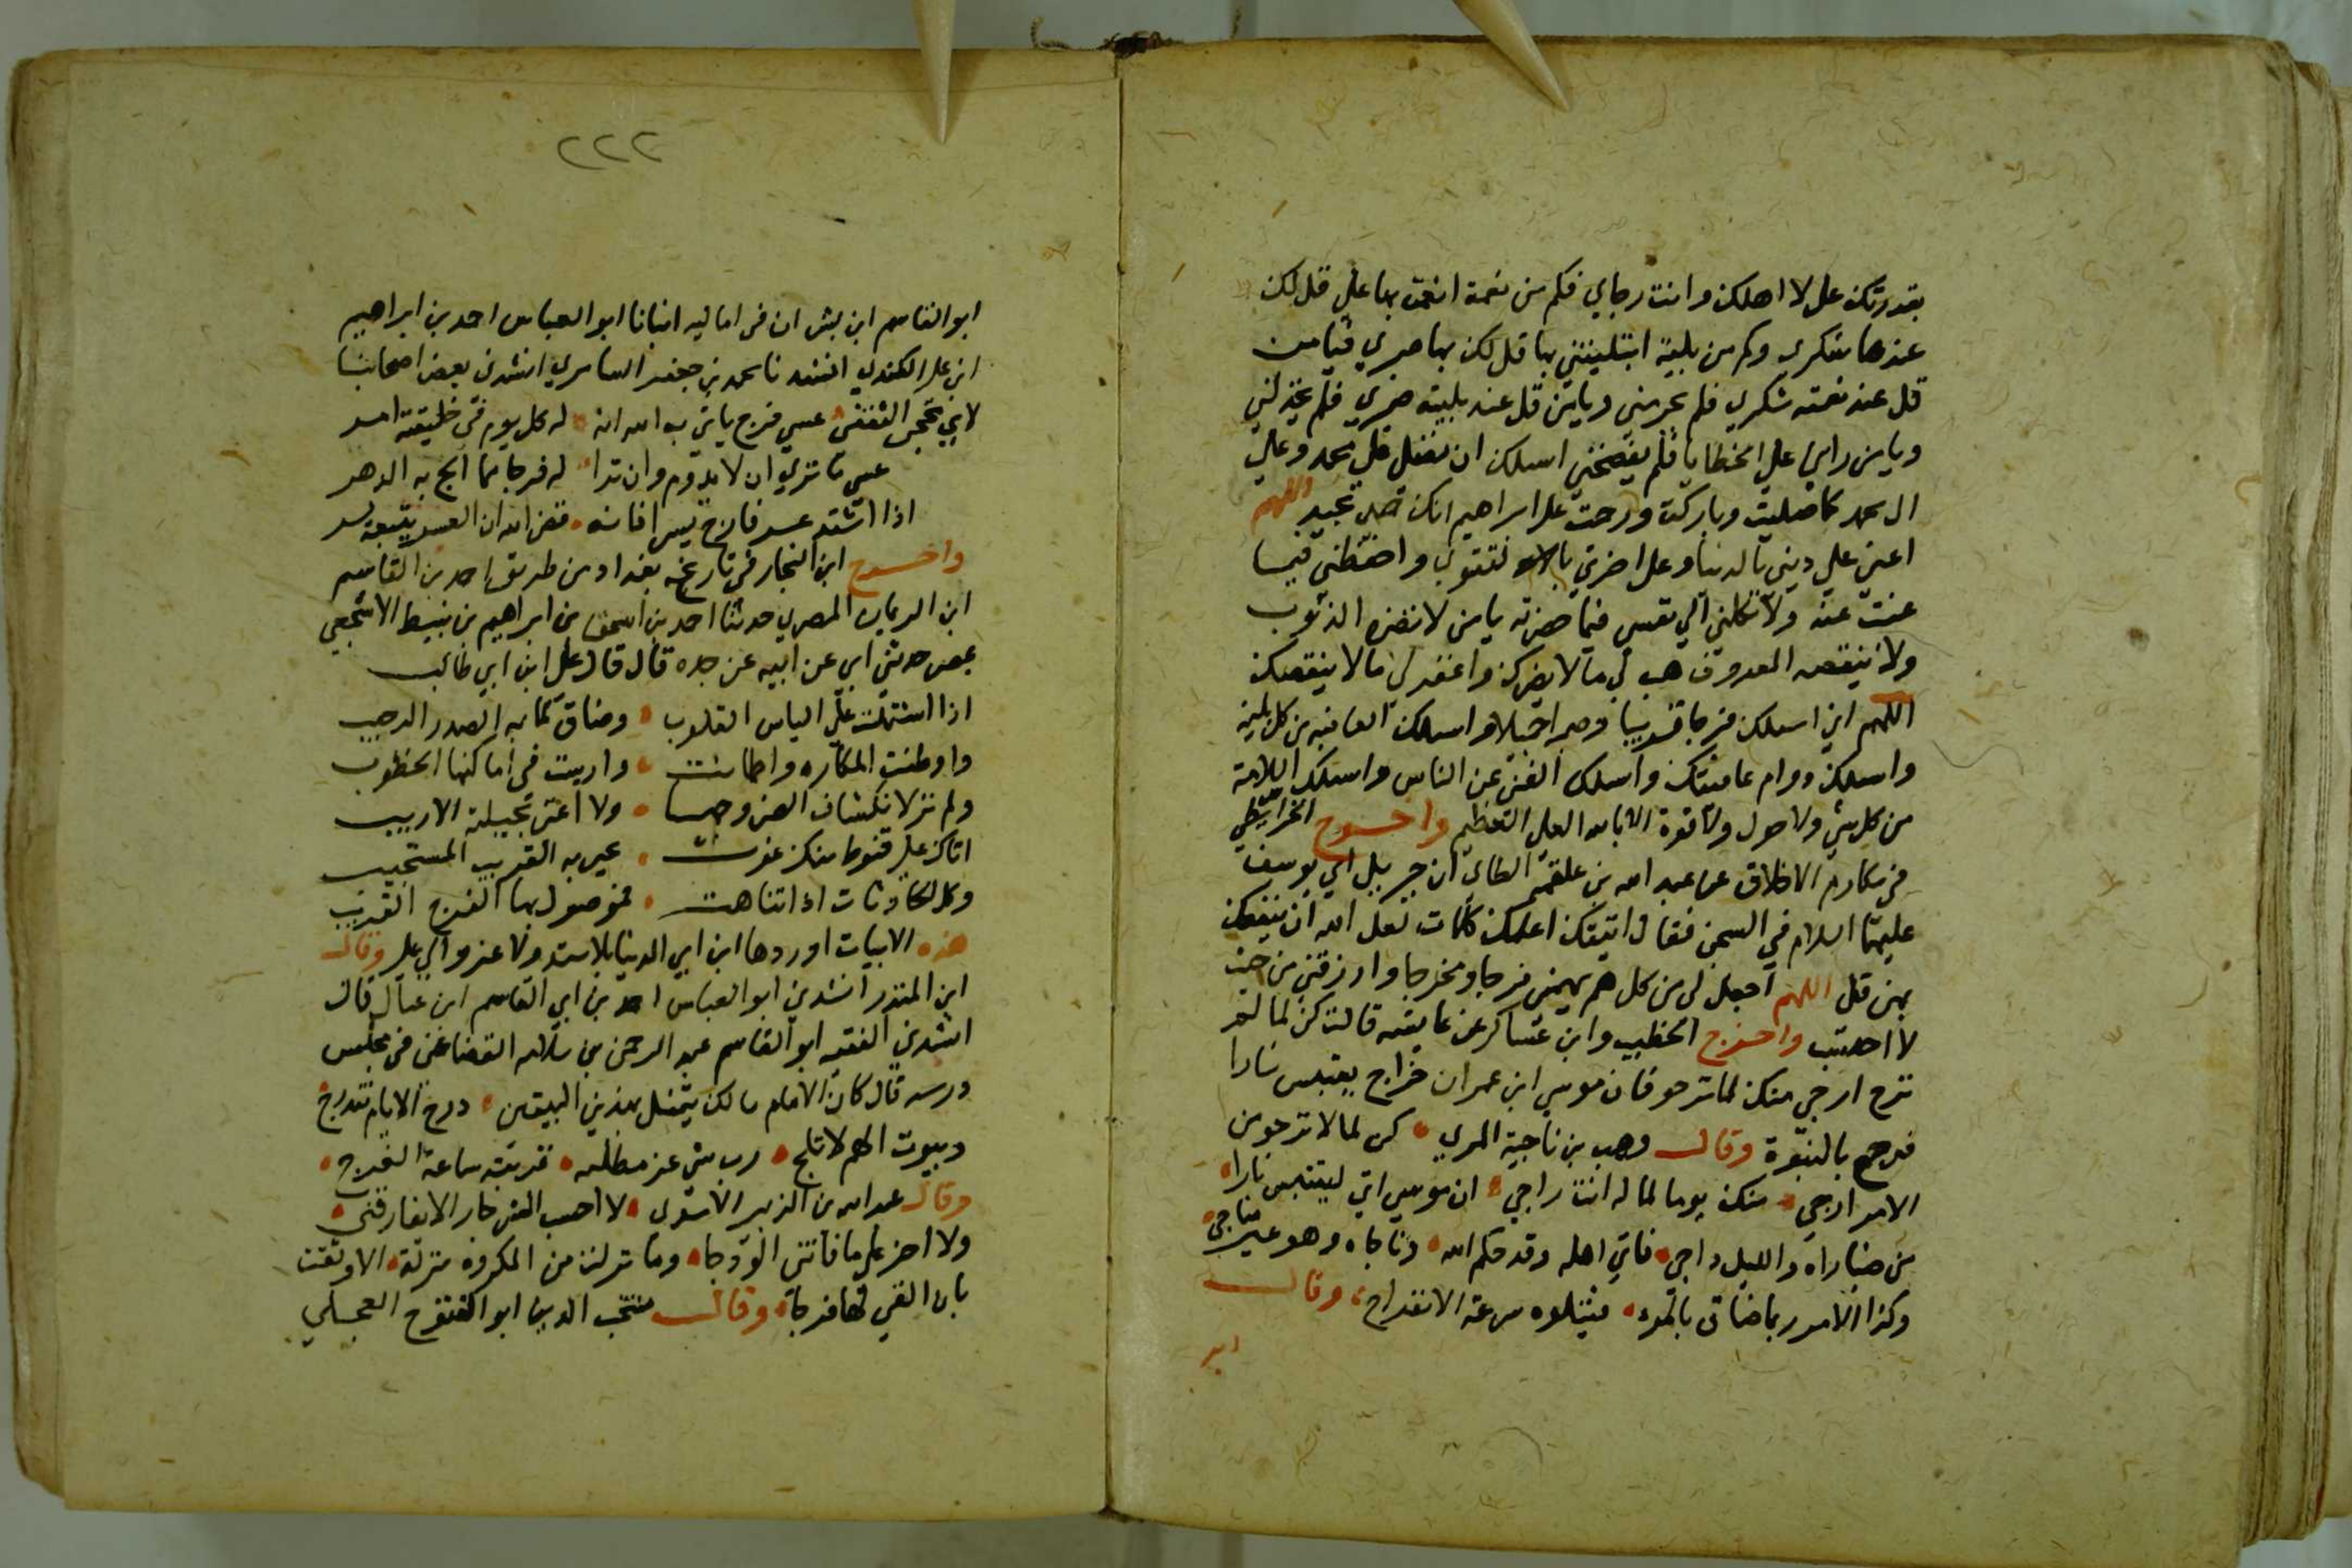 بقدرتك على لا اهلك وانت رجاي فكم من نعمة انعمت بها علي قل لك
عندها شكري وكم من بلية ابتليتني بها قل لك بها صبري فيا من
قل عند نعمته شكري فلم يحرمني ويا من قل عند بليته صبري فلم يخذلني
ويا من راني علي الخطايا فلم يفضحني اسلك ان تصلي علي محمد وعلي
ال محمد كما صليت وباركت ورحمت على ابراهيم انك حميد مجيد اللهم
اعني علي ديني بالدنيا وعلى اخرتي بالتقوي واحفظني فيما
غبت عنه ولا تكلني الي نفسي فيما حضرته يا من لا تضره الذنوب
ولا ينقصه المعروف هب لي ما لا يضرك واغفر لي ما لا ينقصك
اللهم اني اسلك فرجا قريبا وصبرا جميلا واسلك العافية من كل بلية
واسلك دوام عافيتك واسلك الغني عن الناس واسلك السلامة
من كل شي ولا حول ولا قوة الا بالله العلي العظيم واخرج الخرايطي
في مكارم الاخلاق عن عبد الله بن علقمة الطاي ان جبريل اتي يوسف
عليهما السلام في السجن فقال اتيتك اعلمك كلمات لعل الله ان ينفعك
بهن قل اللهم اجعل لي من كل هم يهمني فرجا ومخرجا وارزقني من حيث
لا احتسب واخرج الخطيب وابن عساكر عن عايشه قالت كن لما لم
ترج ارجي منك لما ترجو فان موسي ابن عمران خراج يقتبس نارا
فرجع بالنبوة وقال وهب بن ناجية المري كن لما لا ترجو من
الامر ارجي منك يوما لما له انت راجي ان موسي اتي ليقتبس نارا
من ضيا راه والليل داجي فاتي اهله وقد كلم الله وناجاه وهو خير مناجي
وكذا الامر ربما ضاق بالمرء فيتلوه سرعة الانفراج وقال
ابو
٢٢٢
ابو القاسم ابن بشران في اماليه انبانا ابو العباس احمد بن ابراهيم
ابن علي الكندي انشدنا محمد بن جعفر السامري انشدني بعض اصحابنا
لابي محجن الثقفي عسي فرج ياتي به الله انه له كل يوم في خليقته امر
عسي ما تري ان لا يدوم وان تدا له فرجا مما الج به الدهر
اذا اشتد عسر فارج يسرا فانه قضي الله ان العسر يتبعه يسر
واخرج ابن النجار في تاريخ بغداد من طريق احمد بن القاسم
ابن الريان المصري حدثنا احمد بن اسحق بن ابراهيم بن نبيط الاشجعي
بمصر حدثني ابي عن ابيه عن جده قال قال علي ابن ابي طالب
اذا اشتملت علي الياس القلوب وضاق لما به الصدر الرحيب
واوطنت المكاره واطمانت وارست في اماكنها الخطوب
ولم تر لانكشاف الضر وجها ولا اغني بحيلته الاريب
اتاك علي قنوط منك غوث يمن به القريب المستجيب
وكل الحادثات اذا تناهت فموصول بها الفرج القريب
هذه الابيات اوردها ابن ابي الدنيا بلا سند ولا عزو الي علي وقال
ابن المنذر انشدني ابو العباس احمد بن ابي القاسم ابن عبال قال
انشدني الفقيه ابو القاسم عبد الرحمن بن سلامه القضاعي في مجلس
درسه قال كان الامام مالك يتمثل بهذين البيتين درج الايام تندرج
وبيوت الهم لا تلج رب شي عز مطلبه قربته ساعة الفرج
وقال عبد الله بن الزبير الاسدي لا احسب الشر جار الا يفارقني
ولا احز علي ما فاتني الودجا وما نزلت من المكروه منزلة الا وثقت
بان القي لها فرجا وقال منتجب الدين ابو الفتوح العجلي